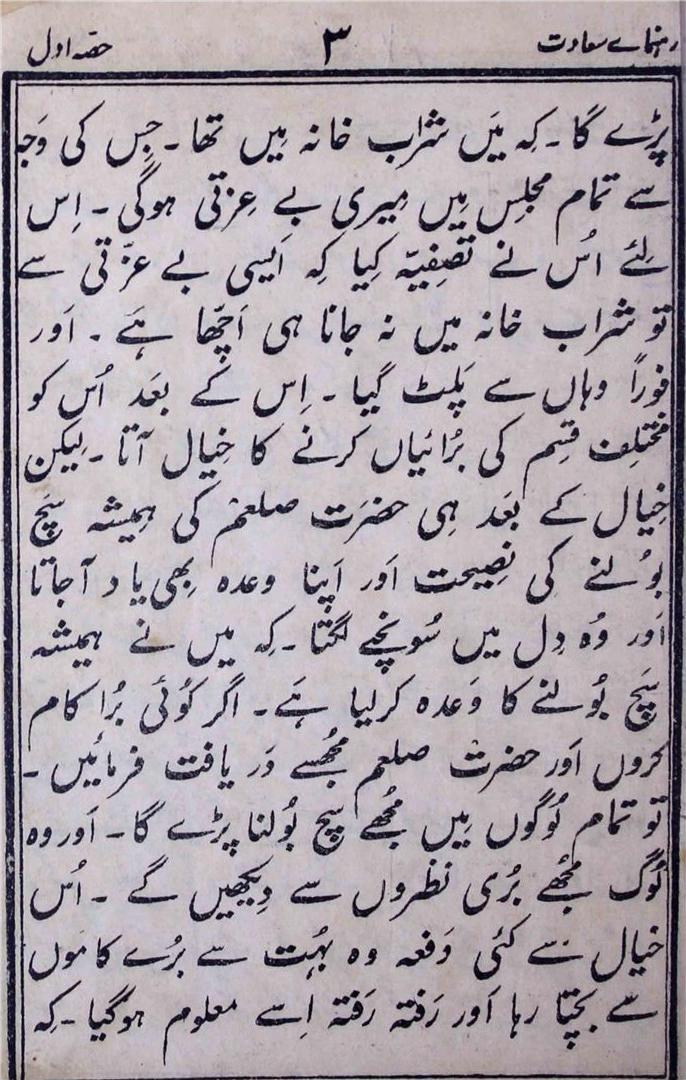 رہنمائے سعادت ۳ حصہ اول
پڑے گا ۔ کہ میَں شراب خانہ مِیں تھا ۔ جِس کی وَجہ
سے تمام مجلِس مِیں مِیری بے عِزتی ہوگی ۔ اِس
لِئے اُس نے تصفِیّہ کِیا کِہ اَیسی بے عزّتی سے
تو شراب خانہ میں نہ جانا ہی اَچّھا ہَے ۔ اَور
فوراً وہاں سے پَلٹ گیا ۔ اِس کے بعَد اُس کو
مختلِف قِسم کی بُرائیاں کرنے کا خِیال آتا ۔ لِیکن
خِیال کے بعَد ہِی حضرَت صلعم کی ہمِیشہ سَچ
بولنے کی نصِیحت اَور اَپنا وعدہ بِھی یاد آجاتا
اَور وُہ دِل میں سُونچنے لگتا ۔ کِہ میں نے ہمیشہ
سَچ بُولنے کا وَعدہ کرلیا ہَے ۔ اگر کوُئی بُرا کام
کروں اَور حضرت صلعم مجُھسے دَریافت فرمائیں ۔
تو تمام لُوگوں مِیں مجُھے سچ بُولنا پڑے گا ۔ اَور وہ
لُوگ مجُھے بُری نظروں سے دِیکھیں گے ۔ اُس
خیال سے کئی دَفعہ وہ بہُت سے بُرے کاموں
سے بچتا رہا اَور رَفتہ رَفتہ اِسے معلوم ہوگیا ۔ کِہ